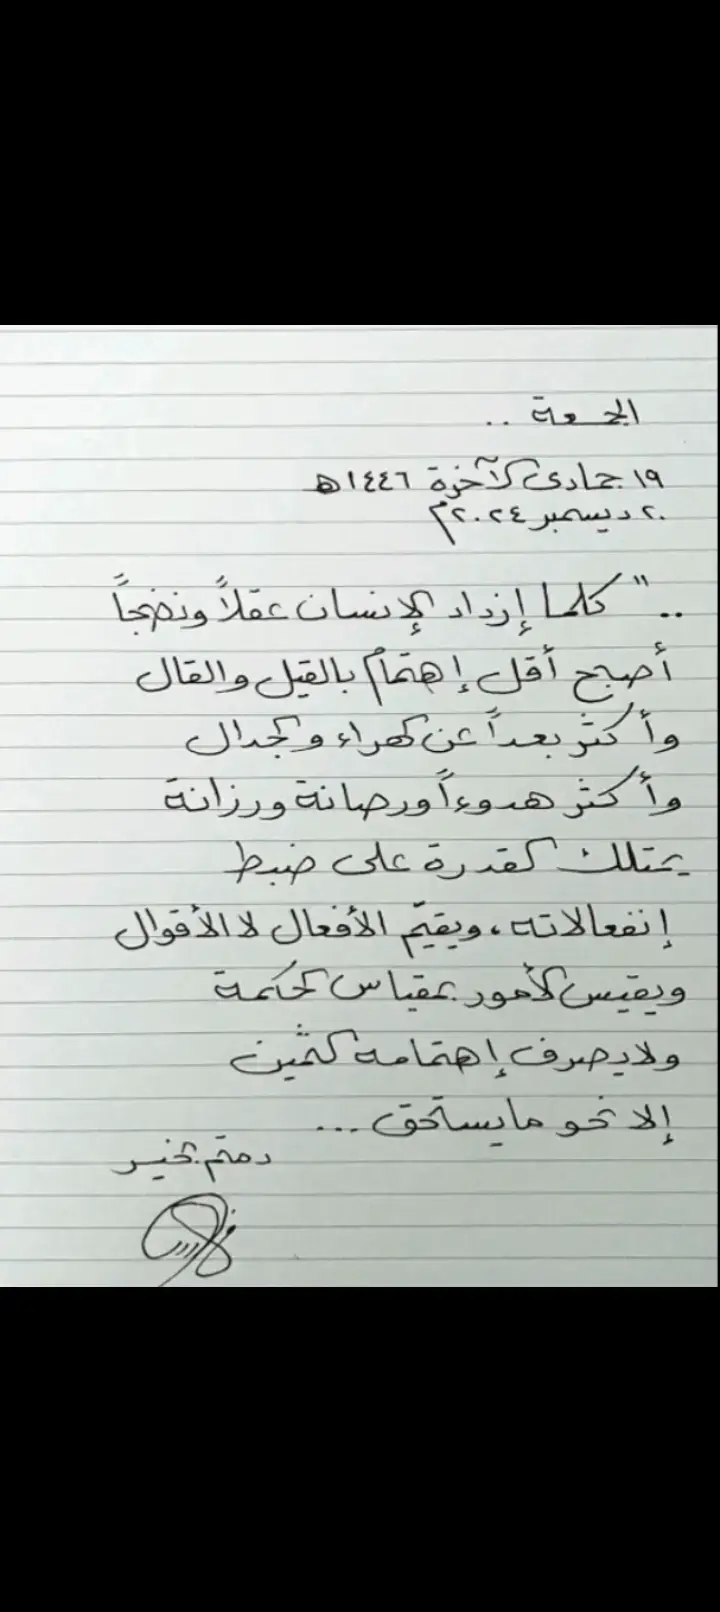 الجمعة ..
١٩ جمادى الآخرة ١٤٤٦هـ
٢٠ ديسمبر ٢٠٢٤م
.. " كلما إزداد الإنسان عقلاً ونضجاً
أصبح أقل إهتمامٌ بالقيل والقال
وأكثر بعداً عن الهراء والجدال
وأكثر هدوءاً ورصانة ورزانة
يمتلك القدرة على ضبط
إنفعالاته، ويقيّم الأفعال لا الأقوال
ويقيس الأمور بمقياس الحكمة
ولا يصرف إهتمامه الثمين
إلا نحو ما يستحق ...
دمتم بخير